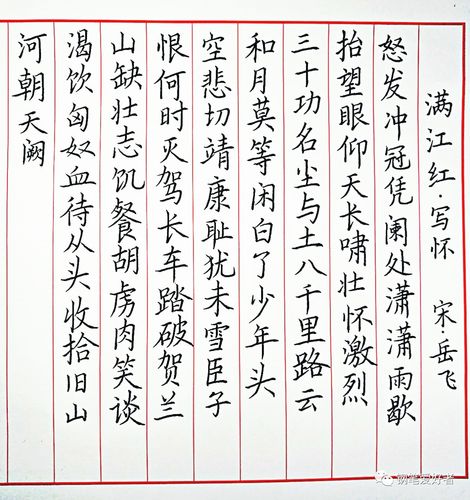 满江红·写怀 宋 岳飞
怒发冲冠凭阑处潇潇雨歇
抬望眼仰天长啸壮怀激烈
三十功名尘与土八千里路云
和月莫等闲白了少年头
空悲切靖康耻犹未雪臣子
恨何时灭驾长车踏破贺兰
山缺壮志饥餐胡虏肉笑谈
渴饮匈奴血待从头收拾旧山
河朝天阙
钢笔爱好者